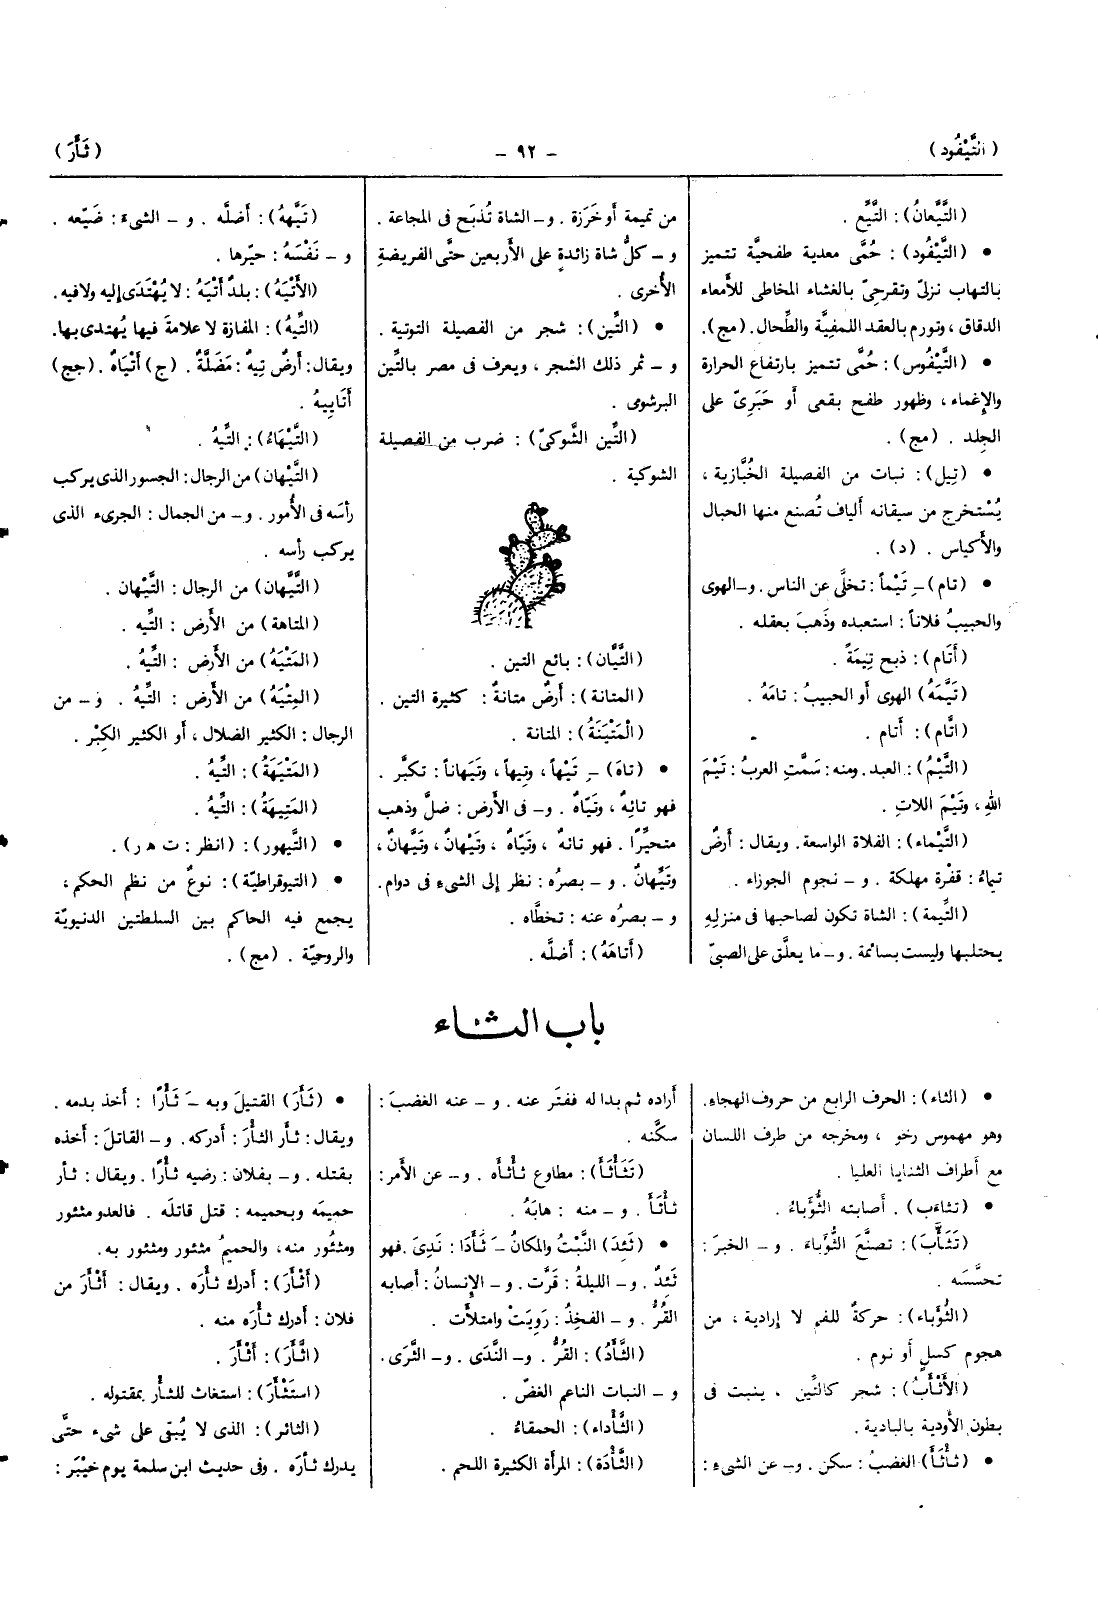 ( التَّيْفُود )
- ٩٢ -
( ثَأَرَ )
(التَّيَّعانُ) : التَّيِّع .
• (التَّيْفُود) : حُمَّى معدية طفحيَّة تتميز
بالتهاب نزلىّ وتقرحىّ بالغشاء المخاطى للأمعاء
الدقاق ، وتورم بالعقد اللمفيَّة والطِّحال . (مج) .
• (التَّيْفُوس) : حُمَّى تتميز بارتفاع الحرارة
والإغماء ، وظهور طفح بقعى أو حَبَرىّ على
الجِلد . (مج) .
• (تِيل) : نبات من الفصيلة الخُبَّازية ،
يُسْتخرج من سيقانه ألياف تُصنع منها الحبال
والأكياس . (د) .
• (تام) ـِ تَيْماً : تخلَّى عن الناس . و- الهوى
والحبيبُ فلاناً : استعبده وذَهبَ بعقله .
(أَتَام) : ذبح تِيمَةً .
(تَيَّمَهُ) الهوى أو الحبيبُ : تامَهُ .
(اتَّام) : أَتام .
(التَّيْمُ) : العبد . ومنه : سَمَّتِ العربُ : تَيْمَ
اللهِ ، وتَيْمَ اللاتِ .
(التَّيْماء) : الفلاة الواسعة . ويقال : أَرضٌ
تيماءُ : قفْرة مهلكة . و - نجوم الجوزاء .
(التِّيمة) : الشاة تكون لصاحبها فى منزلِهِ
يحتلبها وليست بسائمة . و- ما يعلَّق على الصبىّ
من تميمة أو خَرَزة . و- الشاة تُذبَح فى المجاعة .
و - كلُّ شاة زائدةٍ على الأَربعين حتَّى الفريضةِ
الأُخرى .
• (التِّين) : شجر من الفصيلة التوتية .
و - ثمر ذلك الشجر ، ويعرف فى مصر بالتِّين
البرشومى .
(التِّين الشَّوكىّ) : ضرب من الفصيلة
الشوكية .
(التَّيَّان) : بائع التين .
(المتانة) : أَرضٌ متانةٌ : كثيرة التين .
(الْمَتْيَنَةُ) : المتانة .
• (تاهَ) ـِ تَيْهاً ، وتِيهاً ، وتَيَهاناً : تكبَّر .
فهو تائِهٌ ، وتَيَّاهٌ . و- فى الأَرض : ضلَّ وذهب
متحيِّرًا . فهو تائهٌ ، وتَيَّاهٌ ، وتَيْهانٌ ، وتَيَّهانٌ ،
وتَيِّهانٌ . و - بصرُه : نظر إلى الشىء فى دوام .
و - بصرُه عنه : تخطَّاه .
(أَتاهَهُ) : أَضلَّه .
(تَيَّههُ) : أَضلَّه . و - الشىءَ : ضَيّعه .
و - نَفْسَهُ : حيّرها .
(الأَتْيَهُ) : بلدٌ أَتْيَهُ : لا يُهْتَدَى إليه ولافيه .
(التِّيهُ) : المفازة لا علامةَ فيها يُهتدى بها .
ويقال : أَرضٌ تِيهٌ : مَضَلَّةٌ . (ج) أَتْيَاهٌ . (جج)
أَتَايِيهُ .
(التَّيْهَاءُ) : التِّيهُ .
(التَّيْهان) من الرجال : الجسور الذى يركب
رأسَه فى الأُمور . و- من الجمال : الجرىء الذى
يركب رأسه .
(التَّيَّهان) من الرجال : التَّيْهان .
(المتاهة) من الأَرض : التِّيه .
(المَتْيَهُ) من الأَرض : التِّيهُ .
(المِتْيَهُ) من الأَرض : التِّيهُ . و - من
الرجال : الكثير الضلال ، أو الكثير الكِبْر .
(المَتْيَهَةُ) : التِّيهُ .
(المَتِيهَةُ) : التِّيهُ .
• (التَّيهور) : (انظر : ت ه ر) .
• (التيوقراطيّة) : نوعٌ من نظم الحكم ،
يجمع فيه الحاكم بين السلطتين الدنيويّة
والروحيّة . (مج) .
باب الثاء
• (الثاء) : الحرف الرابع من حروف الهجاء .
وهو مهموس رخو ، ومخرجه من طرف اللسان
مع أطراف الثنايا العليا .
• (تثاءَب) . أَصابته الثُّؤَباءُ .
(تَثَأَّبَ) : تصنَّعَ الثُّؤَباءَ . و - الخبرَ :
تحسَّسَه .
(الثُّؤَباء) : حركةٌ للفم لا إرادية ، من
هجوم كسلٍ أَو نوم .
(الأَثْأَبُ) : شجر كالتِّين ، ينبت فى
بطون الأَودية بالبادية .
• (ثَأْثَأَ) الغضبُ : سكن . و- عن الشىءِ :
أَراده ثم بدا له ففتَر عنه . و - عنه الغضبَ :
سكَّنه .
(تَثَأْثَأَ) : مطاوع ثأْثأَه . و- عن الأَمر :
ثأْثَأَ . و - منه : هابَهُ .
• (ثَئِدَ) النَّبْتُ والمكانُ ـَ ثَأَدًا : نَدِىَ . فهو
ثَئِدٌ . و - الليلةُ : قَرَّت . و - الإِنسانُ : أَصابه
القُرُّ . و - الفخِذُ : رَوِيَتْ وامتلأَت .
(الثَّأَدُ) : القُرُّ . و- النَّدَى . و- الثَّرَى .
و - النبات الناعم الغضّ .
(الثَّأْداء) : الحمقاءُ .
(الثَّأْدَة) : المرأة الكثيرة اللحم .
• (ثَأَرَ) القتيلَ وبه ـَ ثَأْرًا : أَخذ بدمه .
ويقال : ثأر الثأْرَ : أَدركه . و- القاتلَ : أَخذه
بقتله . و- بفلان : رضيه ثأْرًا . ويقال : ثأر
حميمَه وبحميمه : قتل قاتلَه . فالعدو مثئور
ومثئُور منه ، والحميمُ مثئور ومثئور به .
(أَثْأَرَ) : أَدرك ثأْرَه . ويقال : أَثْأَرَ من
فلان : أَدرك ثأْرَه منه .
(اثَّأَرَ) : أَثْأَرَ .
(استَثْأَرَ) : استغاث للثأْر بمقتوله .
(الثائر) : الذى لا يُبقى على شىء حتَّى
يدرك ثأْرَه . وفى حديث ابن سلمة يوم خيْبَر :